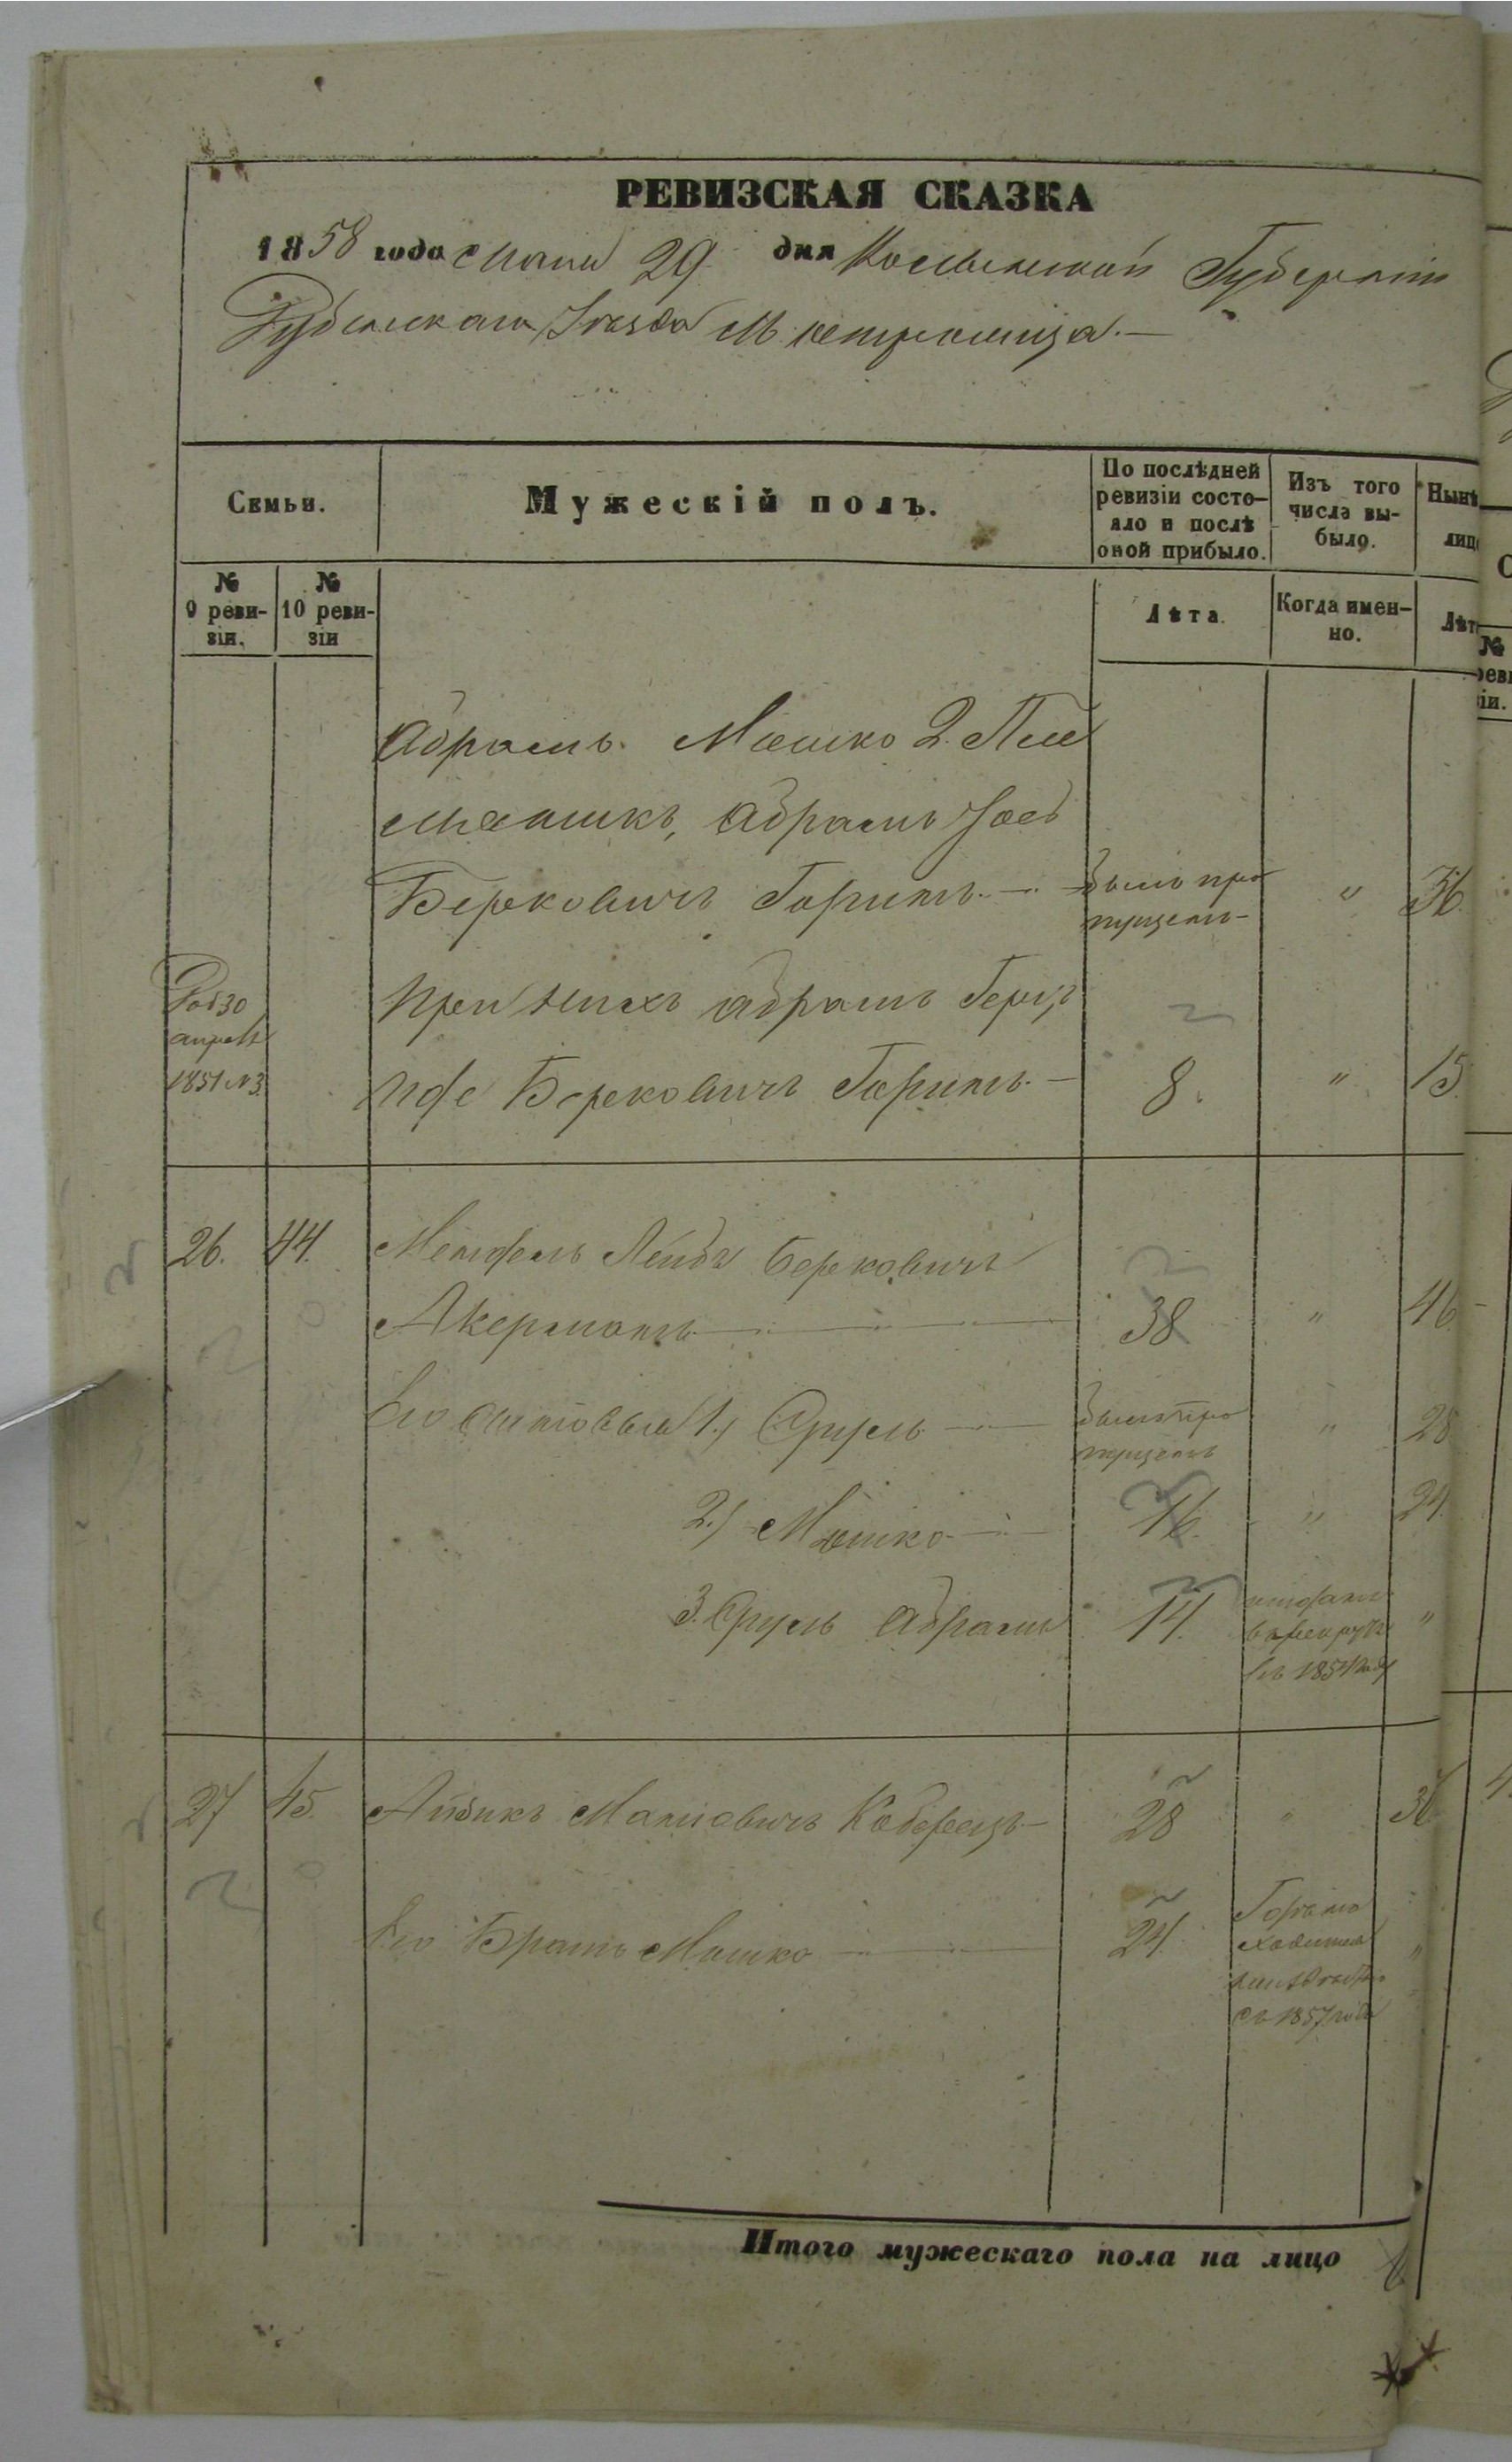 РЕВИЗСКАЯ СКАЗКА
1858 года Маия 29 дня Волынской Губернiи
Дубенскаго Уезда М.
Семьи.
Мужескiй полъ.
По послѣдней ревизiи состо-
яло и послѣ
оной прибыло.
Изъ того
числа вы-
было.
Нынѣ
лиц
№
9 реви-
зiи.
№
10 реви-
зiи
Лѣта.
Когда имен-
но.
Лѣт
Абрамъ. Мошко 2. Пле
мянникъ, Абрамъ Іось
Берковичъ Горинъ
былъ про
пущенъ
"
36
Роб 30
апреля
1851 N3.
При нихъ Абрамъ Герш
Берковичъ Горинъ
8.
"
15
26.
44.
Мендель Лейба Берковичъ
Акерманъ
38
"
46
Его сыновья 1.) Сруль
былъ про
пущенъ
"
28
2.) Мошко
16.
"
24.
3. Сруль Абрамъ
14.
отданъ
въ рекруты
въ 1854 году
"
27
45
Айзикъ Берковичъ
28
"
36
Его Братъ Мошко
24.
находится
съ 1857 года
"
Итого мужескаго пола на лицо 6